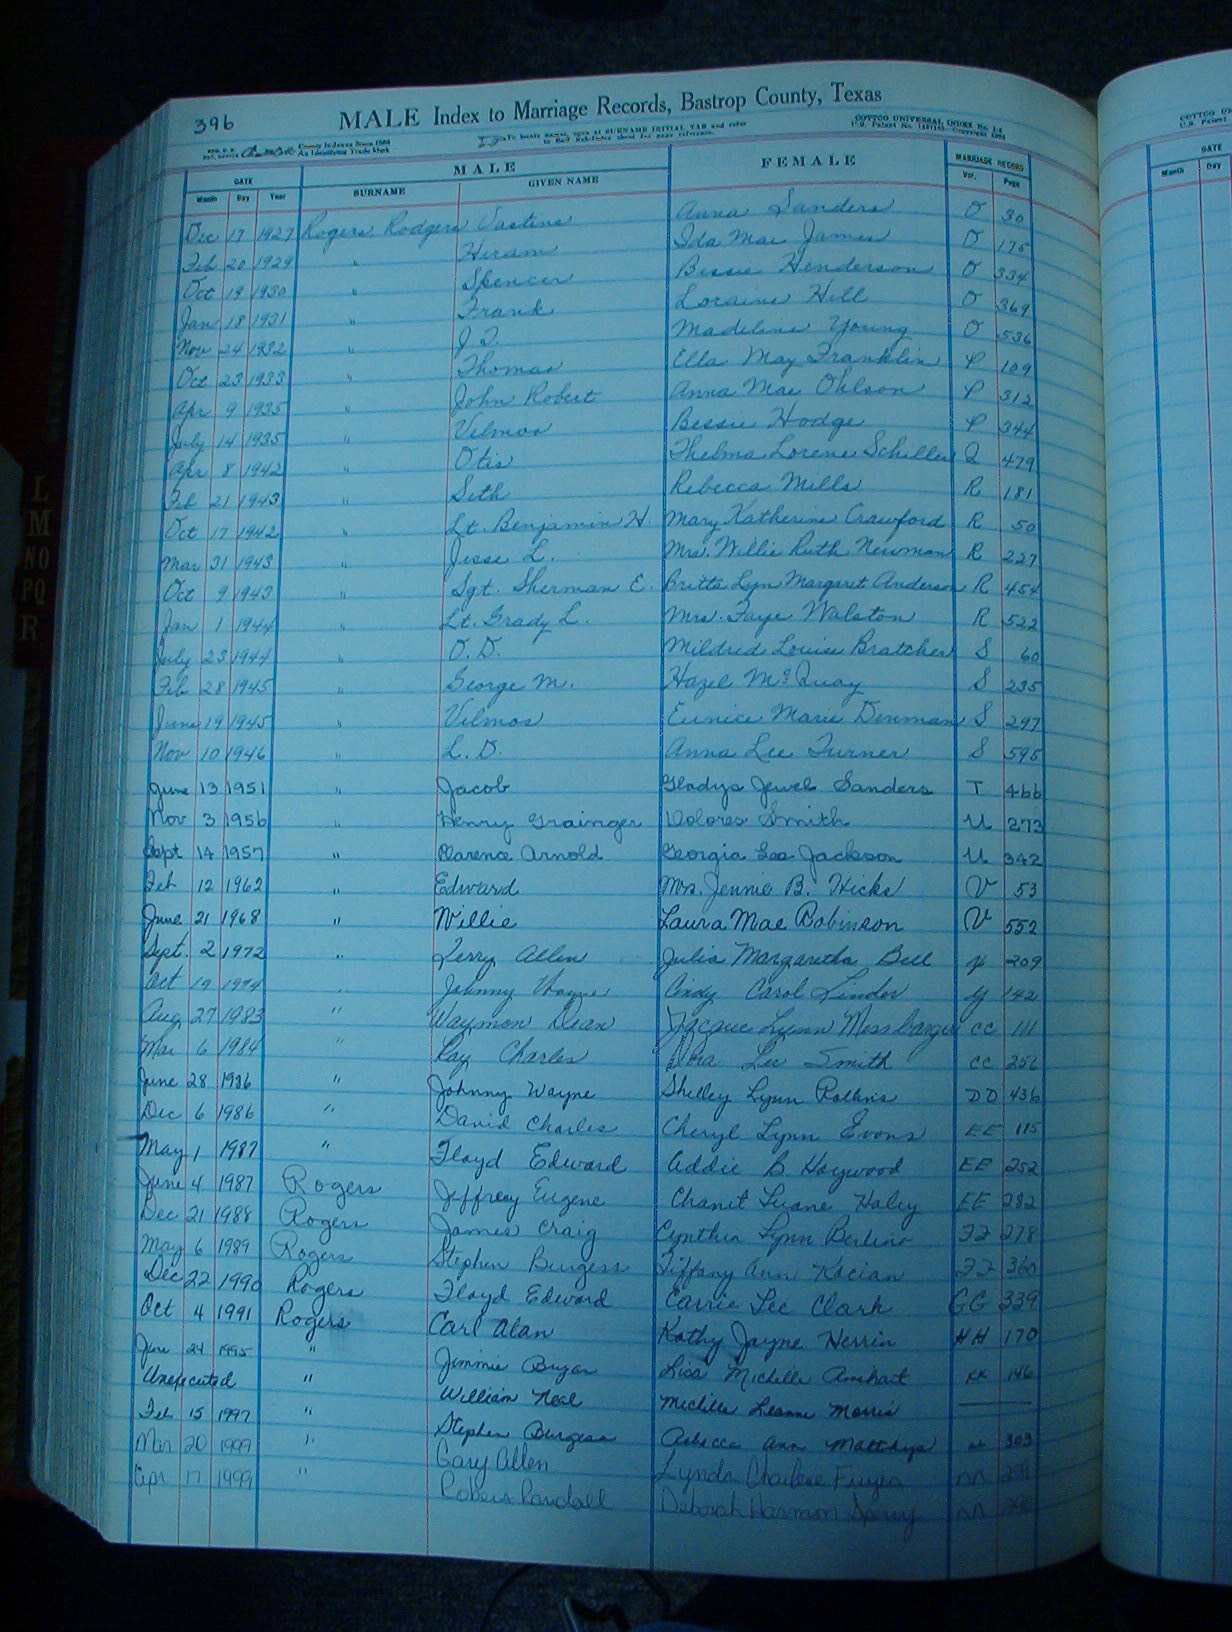 396
MALE Index to Marriage Records, Bastrop County, Texas
To locate names, open at SURNAME INITIAL TAB and refer
COTTCO UNIVERSAL INDEX No. 14
County Indexes Since 1888
An Identifying Trade Mark
DATE MALE FEMALE MARRIAGE RECORD
Month Day Year SURNAME GIVEN NAME Vol. Page
Dec 17 1927 Rogers, Rodgers Vastine Anna Sanders O 30
Feb 20 1929 " Hiram Ida Mae James O 175
Oct 19 1930 " Spencer Bessie Henderson O 334
Jan 18 1931 " Frank Loraine Hill O 369
Nov 24 1932 " J. T. Madeline Young O 536
Oct 23 1933 " Thomas Ella May Franklin P 109
Apr 9 1935 " John Robert Anna Mae Ohlson P 312
July 14 1935 " Velmos Bessie Hodge P 344
Apr 8 1942 " Otis Thelma Lorene Schiller Q 479
Feb 21 1943 " Seth Rebecca Mills R 181
Oct 17 1942 " Lt. Benjamin H. Mary Katherine Crawford R 50
Mar 31 1943 " Jesse L. Mrs. Willie Ruth Newman R 227
Oct 9 1943 " Sgt. Sherman E. Britta Lyn Margaret Anderson R 454
Jan 1 1944 " Lt. Grady L. Mrs. Faye Walston R 522
July 23 1944 " O. D. Mildred Louise Bratcher S 60
Feb 28 1945 " George M. Hazel McQuay S 235
June 19 1945 " Velmos Eunice Marie Denman S 297
Nov 10 1946 " L. D. Anna Lee Turner S 595
June 13 1951 " Jacob Gladys Jewel Sanders T 466
Nov 3 1956 " Henry Grainger Dolores Smith U 273
Sept 14 1957 " Clarence Arnold Georgia Jackson U 342
Feb 12 1962 " Edward Mrs. Jennie B. Hicks V 53
June 21 1968 " Willie Laura Mae Robinson V 552
Sept. 2 1972 " Terry Allen Julia Margaretha Bell 209
Oct 19 1974 " Johnny Wayne Cindy Carol Linder Y 142
Aug 27 1983 " Waymon Dean Jacque Lynn Messbarger CC 111
Mar 6 1984 " Ray Charles Lee Smith CC 252
June 28 1986 " Johnny Wayne Shelley Lynn Rollins DD 436
Dec 6 1986 " David Charles Cheryl Lynn Evans EE 115
May 1 1987 " Floyd Edward Addie B Haywood EE 252
June 4 1987 Rogers Jeffrey Eugene Luane Haley EE 282
Dec 21 1988 Rogers James Craig Cynthia Lynn FF 278
May 6 1989 Rogers Stephen Burgess Tiffany Ann Kocian FF 360
Dec 22 1990 Rogers Floyd Edward Carrie Lee Clark GG 339
Oct 4 1991 Rogers Carl Alan Kathy Jayne Herrin HH 170
24 1995 " Jimmie Bryan Lisa Michelle KK 146
Unexecuted " William Neal Michelle Leanne Morris
Feb 15 1997 " Stephen Burgess Rebecca Ann 303
Mar 20 1999 " Gary Allen Lynda Charlene NN
Apr 17 1999 " Robert Randall Deborah Harmon NN
L
M
NO
PQ
R
DATE
Month Day